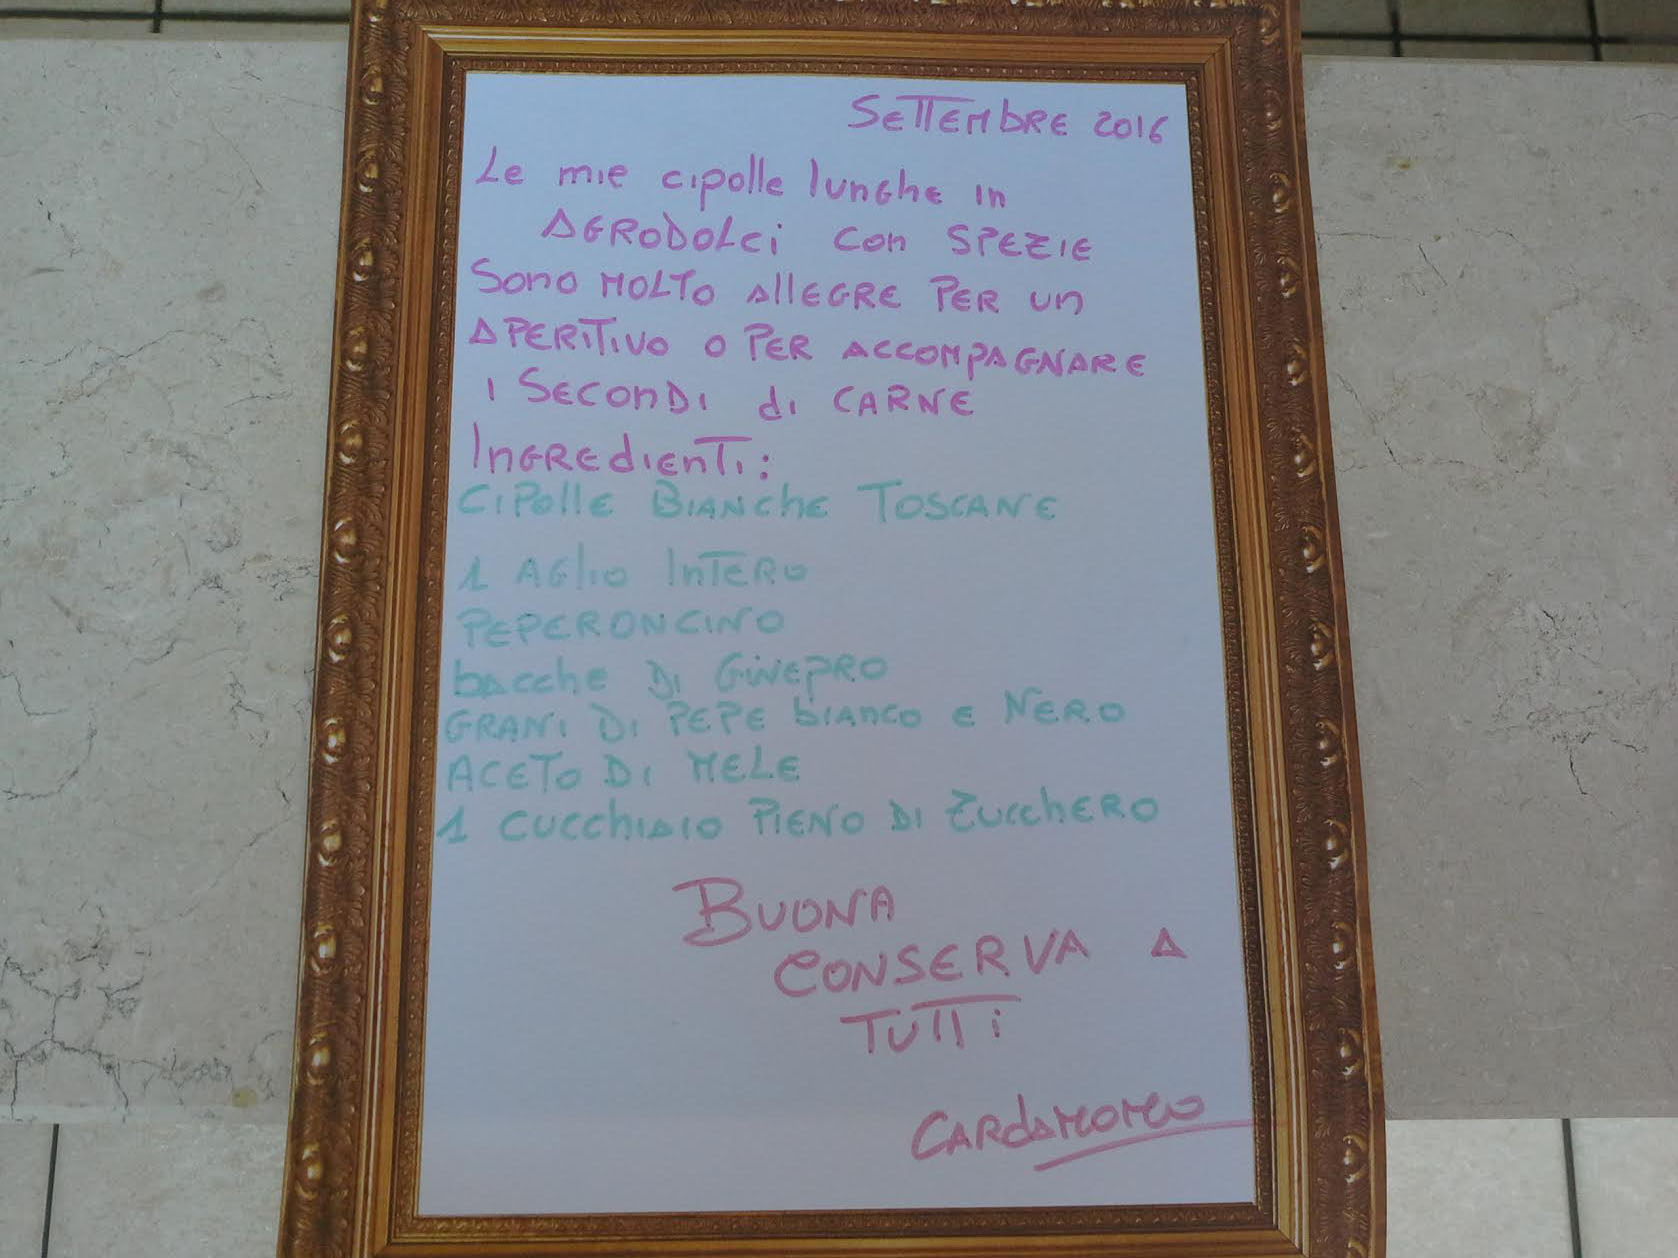 SETTEMBRE 2016
Le mie cipolle lunghe in
AGRODOLCI con SPEZIE
Sono MOLTO AllEGRE PER un
APERITIVO O PER ACCOMPAGNARE
I SECONDI di CARNE
INGREDIENTI:
CIPOLLE BIANCHE TOSCANE
1 AGLIO INTERO
PEPERONCINO
bacche DI GINEPRO
GRANI DI PEPE bianco E NERO
ACETO DI MELE
1 CUCCHIAIO PIENO DI ZUCCHERO
BUONA
CONSERVA A
TUTTI
CARDAMOMO